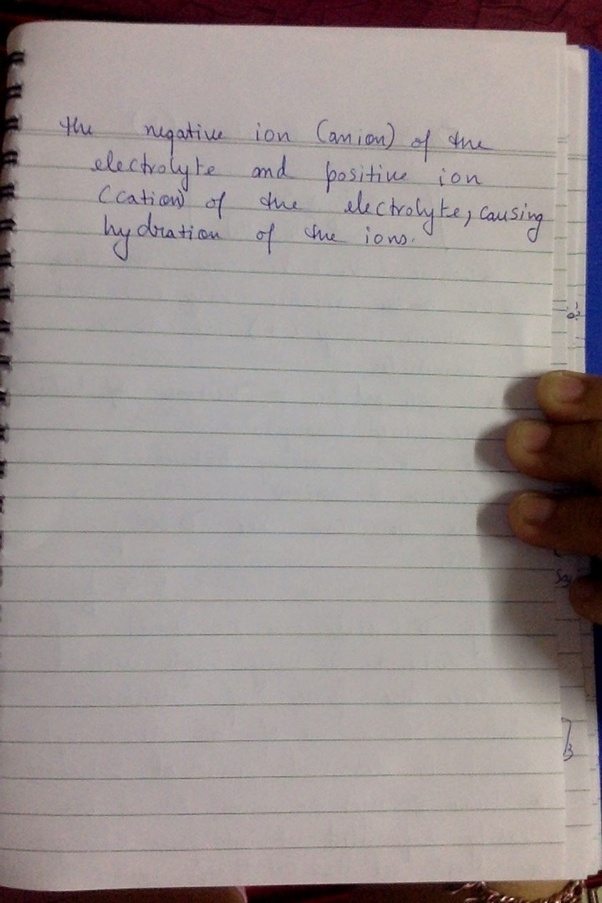 the negative ion (anion) of the
electrolyte and positive ion
(cation) of the electrolyte, causing
hydration of the ions.